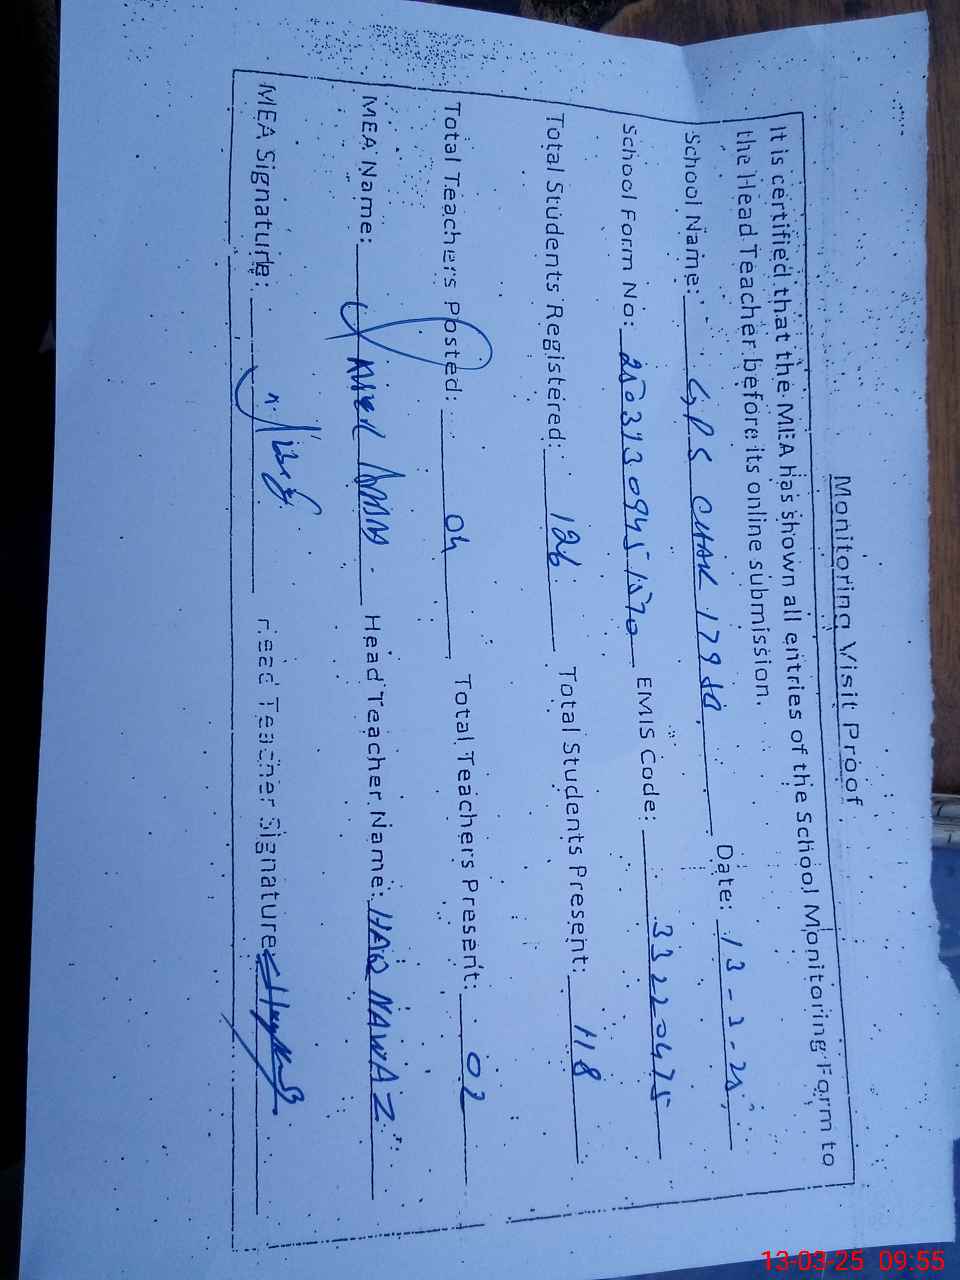 Monitoring Visit Proof
It is certified that the MEA has shown all entries of the School Monitoring Form to
the Head Teacher before its online submission.
School Name: GPS CHAK 179 Date: 13-3-25
School Form No: EMIS Code: 33220475
Total Students Registered: 126 Total Students Present: 118
Total Teachers Posted: 04 Total Teachers Present: 02
MEA Name: Head Teacher Name: HAQ NAWAZ
MEA Signature: Head Teacher Signature
13-03-25 09:55